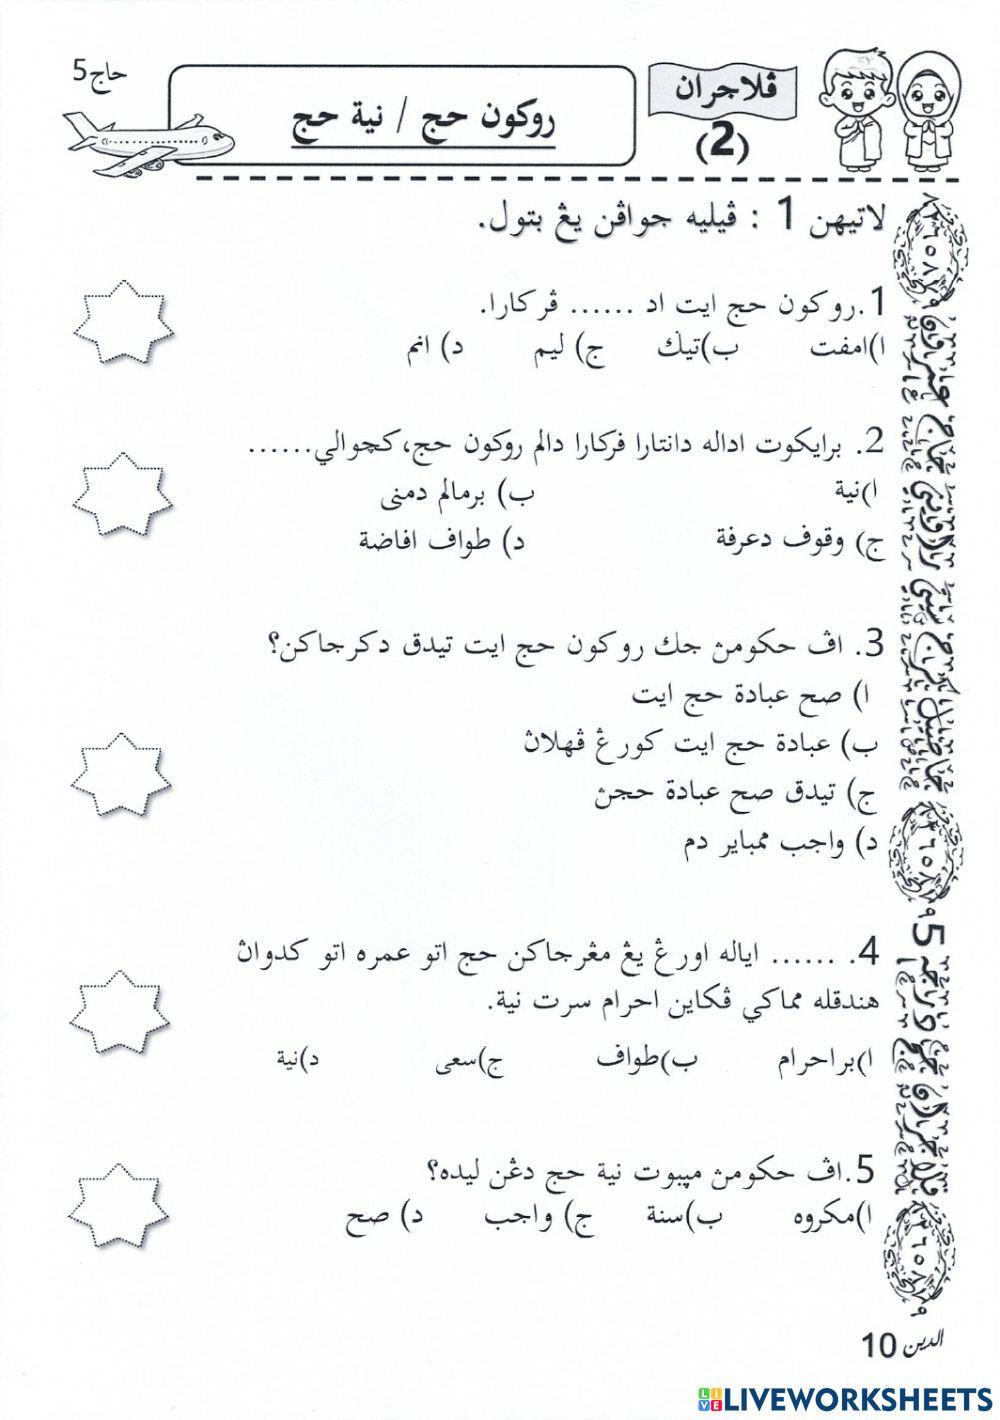 حاج 5
ڤلاجران
(2)
روكون حج / نية حج
لاتيهن 1 : ڤيليه جواڤن يڠ بتول.
1. روكون حج ايت اد ...... ڤركارا.
ا) امفت ب) تيݢ ج) ليم د) انم
2. برايكوت اداله دانتارا فركارا دالم روكون حج، كچوالي......
ا) نية ب) برمالم دمنى
ج) وقوف دعرفة د) طواف افاضة
3. اڤ حكومڽ جك روكون حج ايت تيدق دكرجاكن؟
ا) صح عبادة حج ايت
ب) عبادة حج ايت كورڠ ڤهلاڽ
ج) تيدق صح عبادة حجڽ
د) واجب ممباير دم
4. ...... اياله اورڠ يڠ مڠرجاكن حج اتو عمره اتو كدواڽ
هندقله مماكي ڤكاين احرام سرت نية.
ا) براحرام ب) طواف ج) سعى د) نية
5. اڤ حكومڽ مڽبوت نية حج دڠن ليده؟
ا) مكروه ب) سنة ج) واجب د) صح
الدين 10
LIVEWORKSHEETS